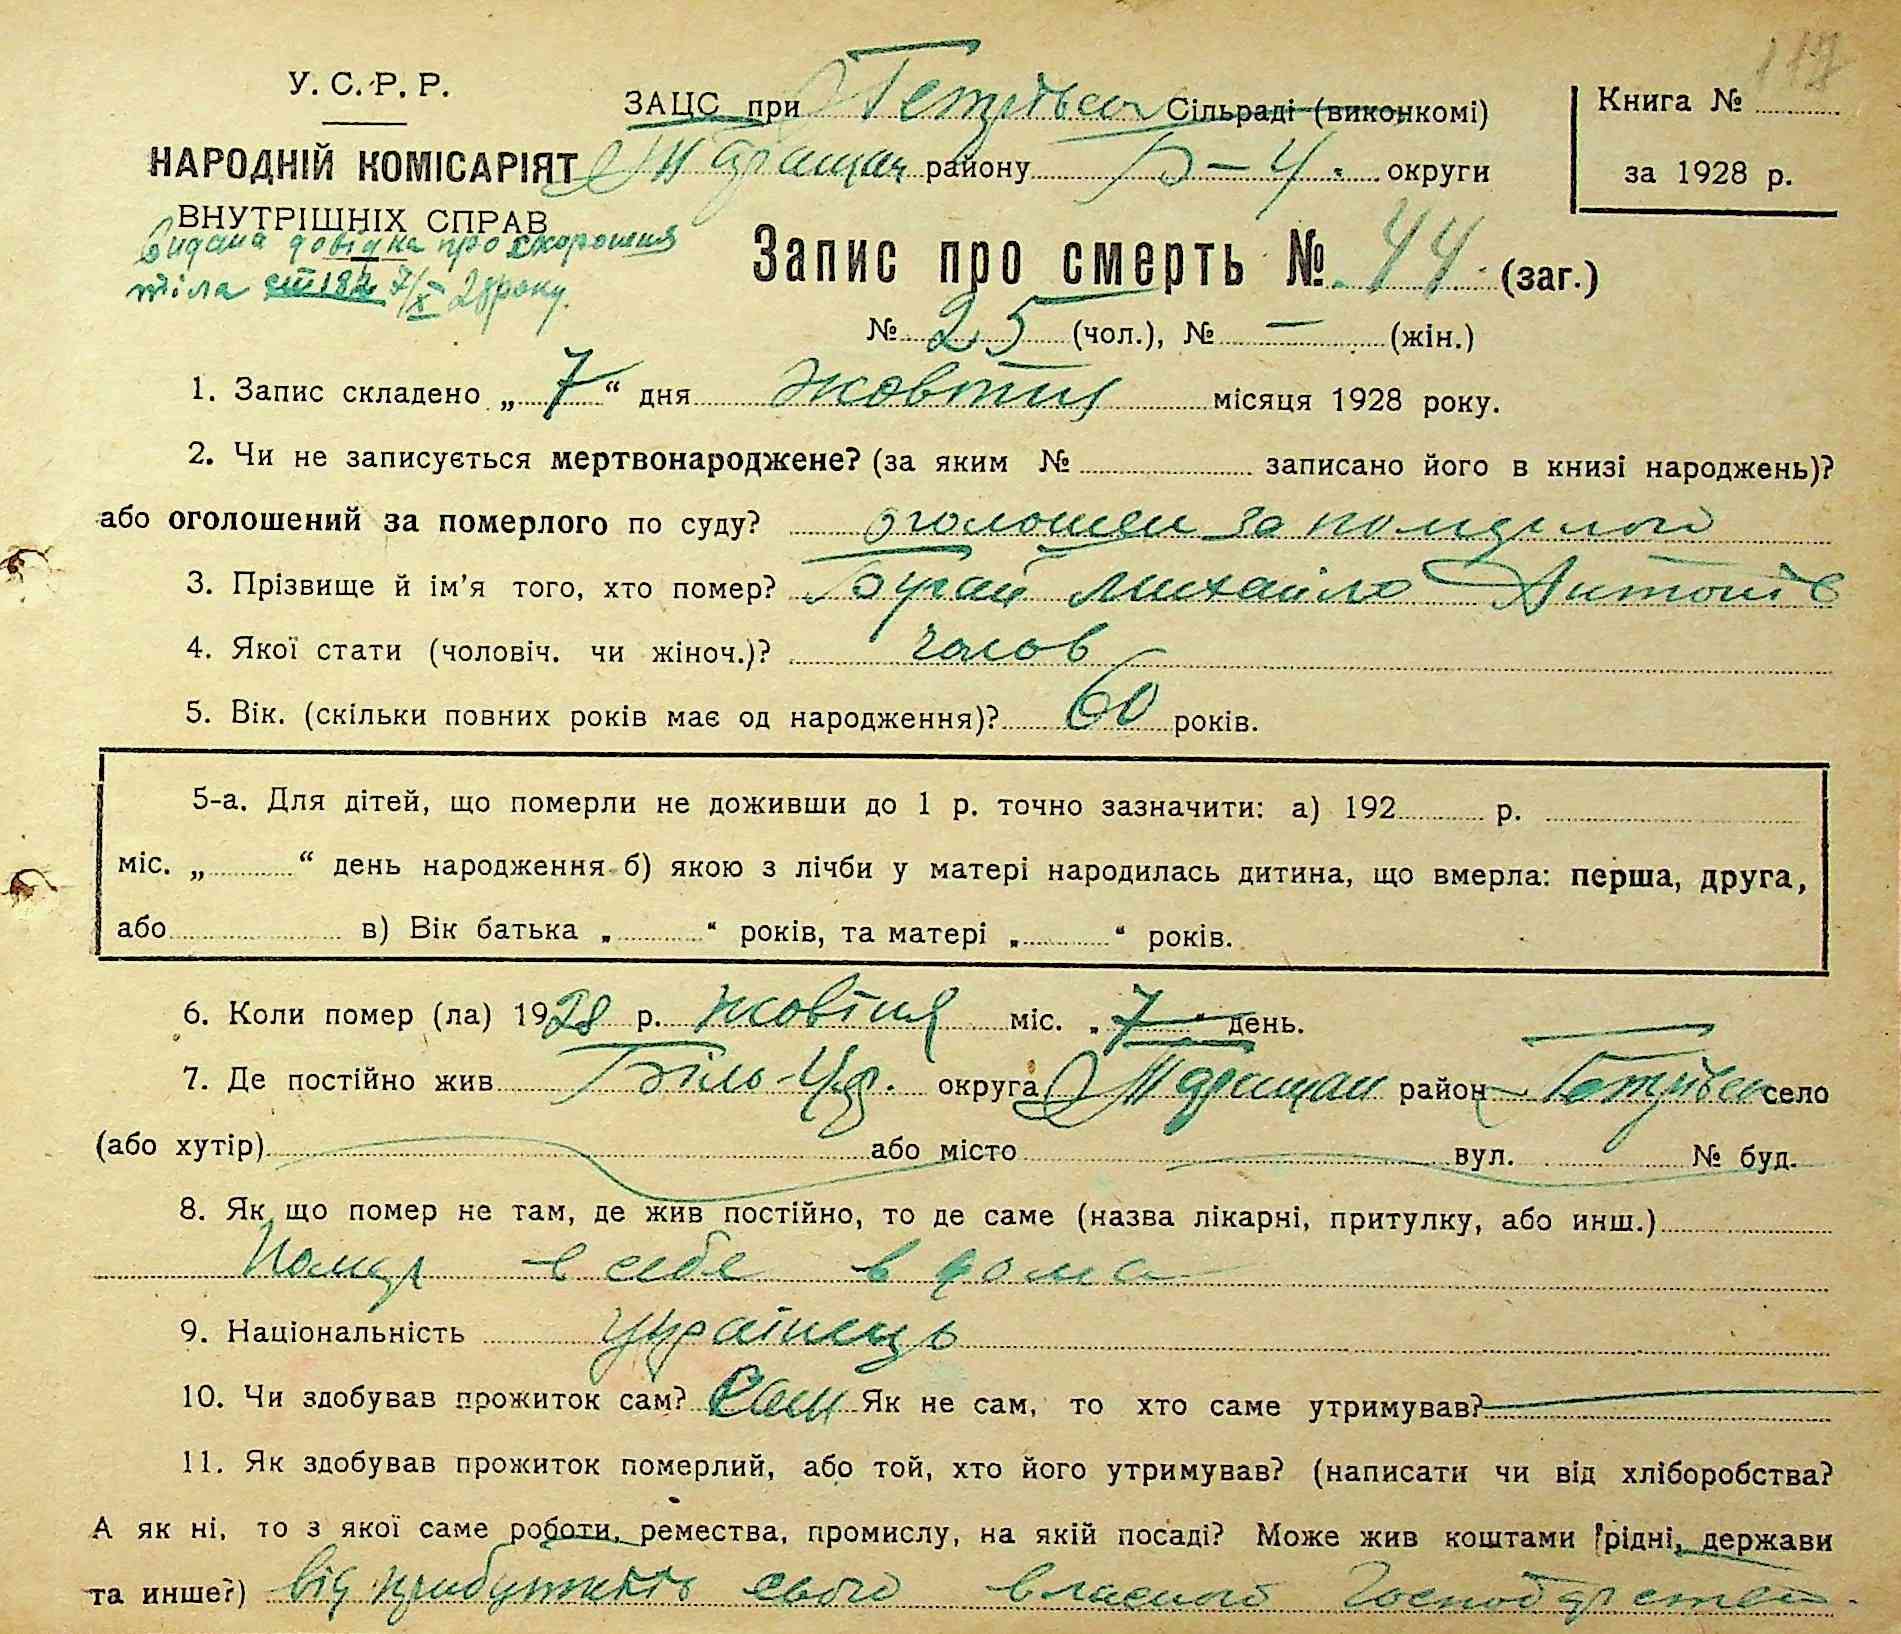 117
У. С. Р. Р.
НАРОДНІЙ КОМІСАРІЯТ
ВНУТРІШНІХ СПРАВ
Видана довідка про схоронення
тіла 7/X 28 року.
ЗАЦС при Петрівськ Сільраді (виконкомі)
району Б-Ц. округи
Книга №
за 1928 р.
Запис про смерть № 44 (заг.)
№ 25 (чол.), № — (жін.)
1. Запис складено „ 7 “ дня жовтня місяця 1928 року.
2. Чи не записується мертвонароджене? (за яким № записано його в книзі народжень)?
або оголошений за померлого по суду? оголошен за померлого
3. Прізвище й ім’я того, хто помер? Бугай Михайло Антонів
4. Якої стати (чоловіч. чи жіноч.)? чолов
5. Вік. (скільки повних років має од народження)? 60 років.
5-а. Для дітей, що померли не доживши до 1 р. точно зазначити: а) 192 р.
міс. „ “ день народження б) якою з лічби у матері народилась дитина, що вмерла: перша, друга,
або в) Вік батька „ “ років, та матері „ “ років.
6. Коли помер (ла) 1928 р. жовтня міс. „ 7 “ день.
7. Де постійно жив Біло-Цер. округа район Петрівск село
(або хутір) або місто вул. № буд.
8. Як що помер не там, де жив постійно, то де саме (назва лікарні, притулку, або инш.)
Помер в себе в дома
9. Національність Українець
10. Чи здобував прожиток сам? Сам Як не сам, то хто саме утримував?
11. Як здобував прожиток померлий, або той, хто його утримував? (написати чи від хліборобства?
А як ні, то з якої саме роботи, ремества, промислу, на якій посаді? Може жив коштами рідні, держави
та инше?) від прибутків свого власного Господарства.